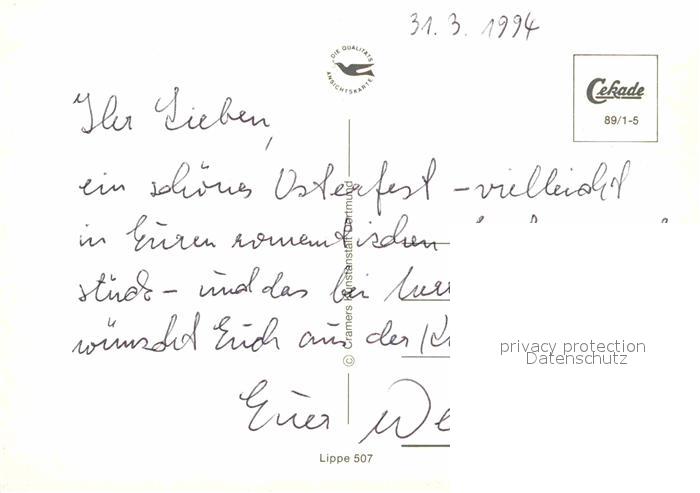 31. 3. 1994
DIE QUALITÄTS
ANSICHTSKARTE
Cekade
89/1-5
Ihr Lieben,
ein schönes Osterfest – vielleicht
in Euren romantischen
stück – und das bei
wünscht Euch aus der
Euer We
© Cramers Kunstanstalt Dortmund
privacy protection
Datenschutz
Lippe 507